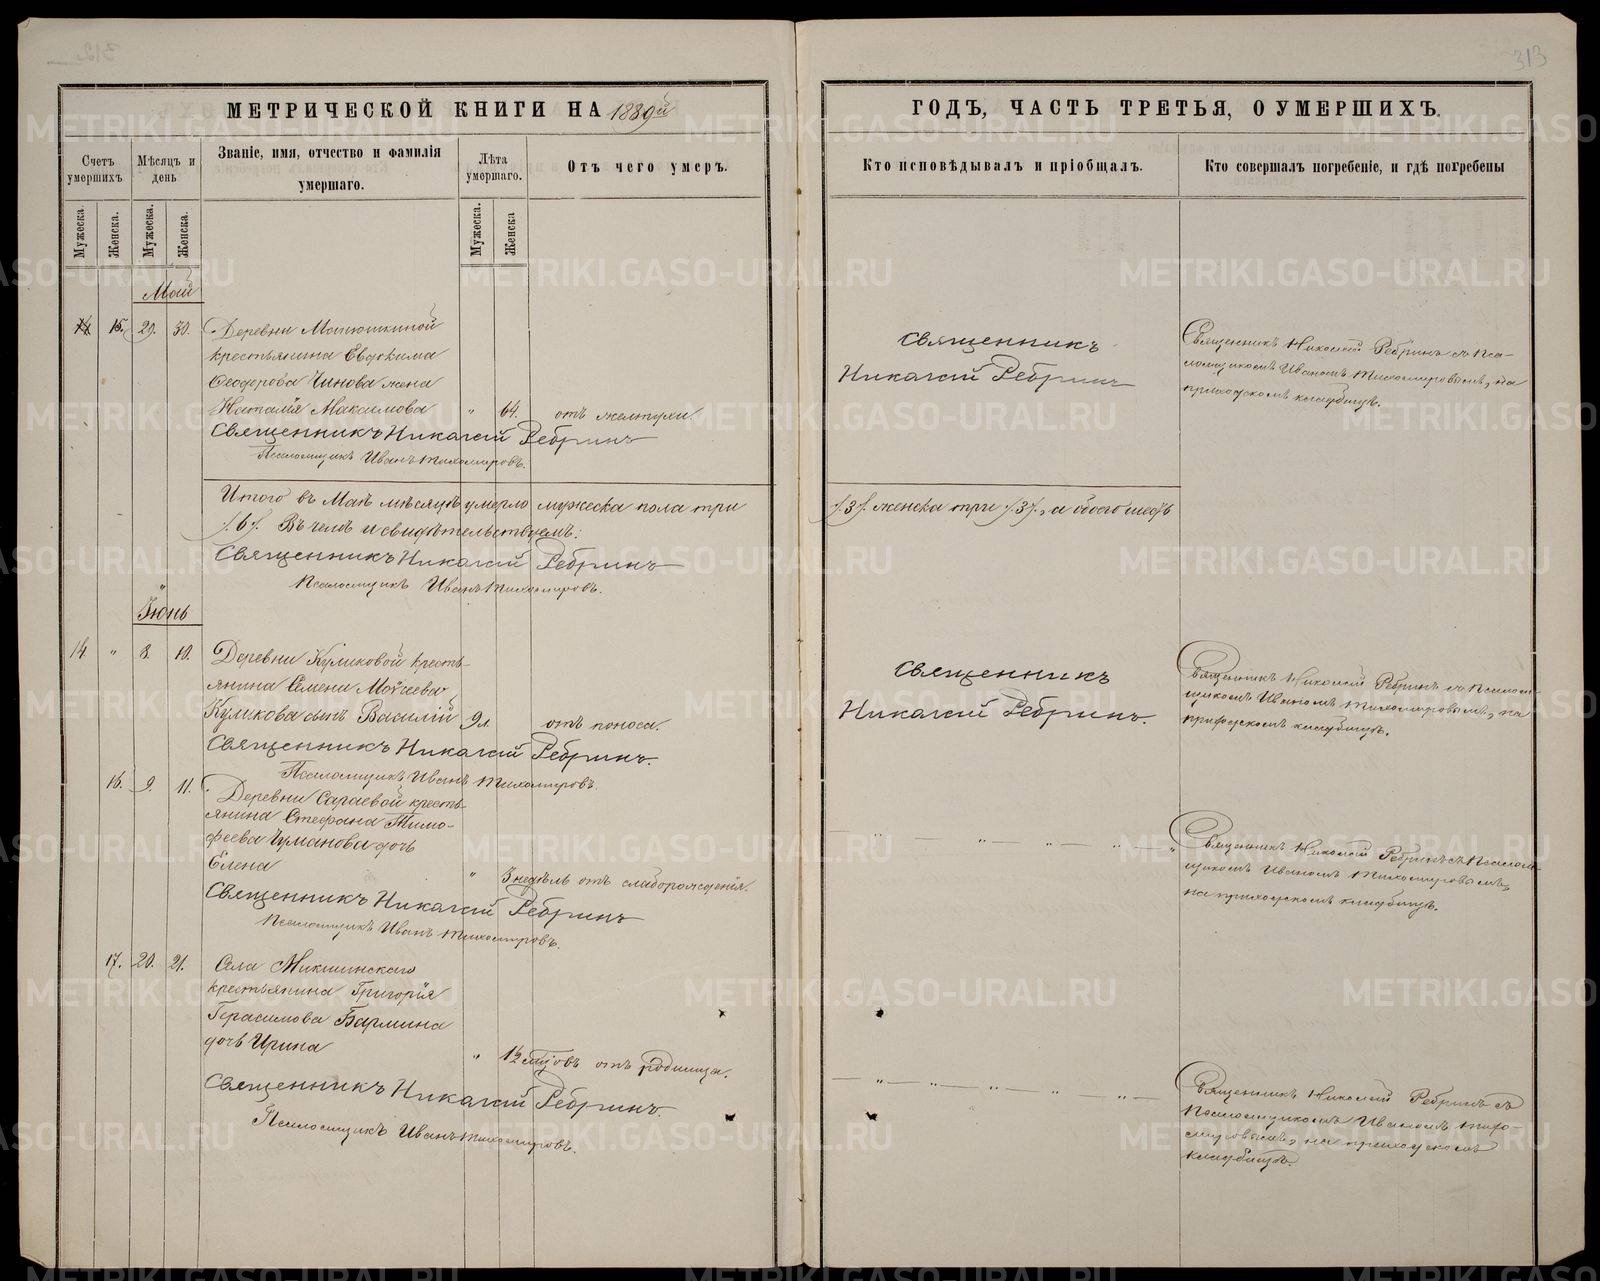 313
МЕТРИЧЕСКОЙ КНИГИ НА 1889й
ГОДЪ, ЧАСТЬ ТРЕТЬЯ, О УМЕРШИХЪ.
Счетъ умершихъ
Мѣсяцъ и день
Званіе, имя, отчество и фамилія
умершаго.
Лѣта умершаго.
Отъ чего умеръ.
Кто исповѣдывалъ и пріобщалъ.
Кто совершалъ погребеніе, и гдѣ погребены
Мужеска.
Женска.
Мужеска.
Женска.
Мужеска.
Женска
Май
15. 29. 30.
Деревни
крестьянина Евдокима
Ѳеодорова Чинова жена
Наталія Максимова „ 64. отъ желтухи.
Священникъ Николай Ребринъ
Псаломщикъ Иванъ Тихомировъ.
Священникъ
Николай Ребринъ
Священникъ Николай Ребринъ съ Пса-
ломщикомъ Иваномъ Тихомировымъ, на
приходскомъ кладбищѣ.
Итого въ Маѣ мѣсяцѣ умерло мужеска пола три
/3/. женска три /3/., а обоего шесть
/6/. Въ чемъ и свидѣтельствуемъ:
Священникъ Николай Ребринъ
Псаломщикъ Иванъ Тихомировъ.
Іюнь
14. „ 8. 10.
Деревни Куликовой кресть-
янина Семена Моѵсеева
Куликова сынъ Василій 9 л. отъ поноса.
Священникъ Николай Ребринъ.
Псаломщикъ Иванъ Тихомировъ.
Священникъ
Николай Ребринъ.
Священникъ Николай Ребринъ съ Псалом-
щикомъ Иваномъ Тихомировымъ, на
приходскомъ кладбищѣ.
16. 9. 11.
Деревни Сараевой кресть-
янина Стефана Тимо-
феева Чуманова дочь
Елена „ 3 недѣль отъ слаборожденія.
Священникъ Николай Ребринъ
Псаломщикъ Иванъ Тихомировъ.
Священникъ Николай Ребринъ съ Псалом-
щикомъ Иваномъ Тихомировымъ,
на приходскомъ кладбищѣ.
17. 20. 21.
Села Микшинскаго
крестьянина Григорія
Герасимова Бармина
дочь Ирина „ 1½ отъ родимца.
Священникъ Николай Ребринъ.
Псаломщикъ Иванъ Тихомировъ.
Священникъ Николай Ребринъ съ
Псаломщикомъ Иваномъ Тихо-
мировымъ, на приходскомъ
кладбищѣ.
METRIKI.GASO-URAL.RU